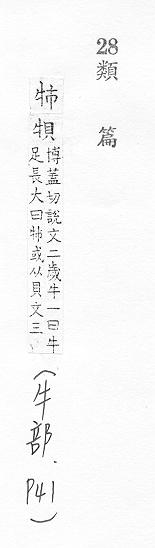 28
類篇
牬
博蓋切說文二歲牛一曰牛
足長大曰牬或从貝文三
(牛部. P41)